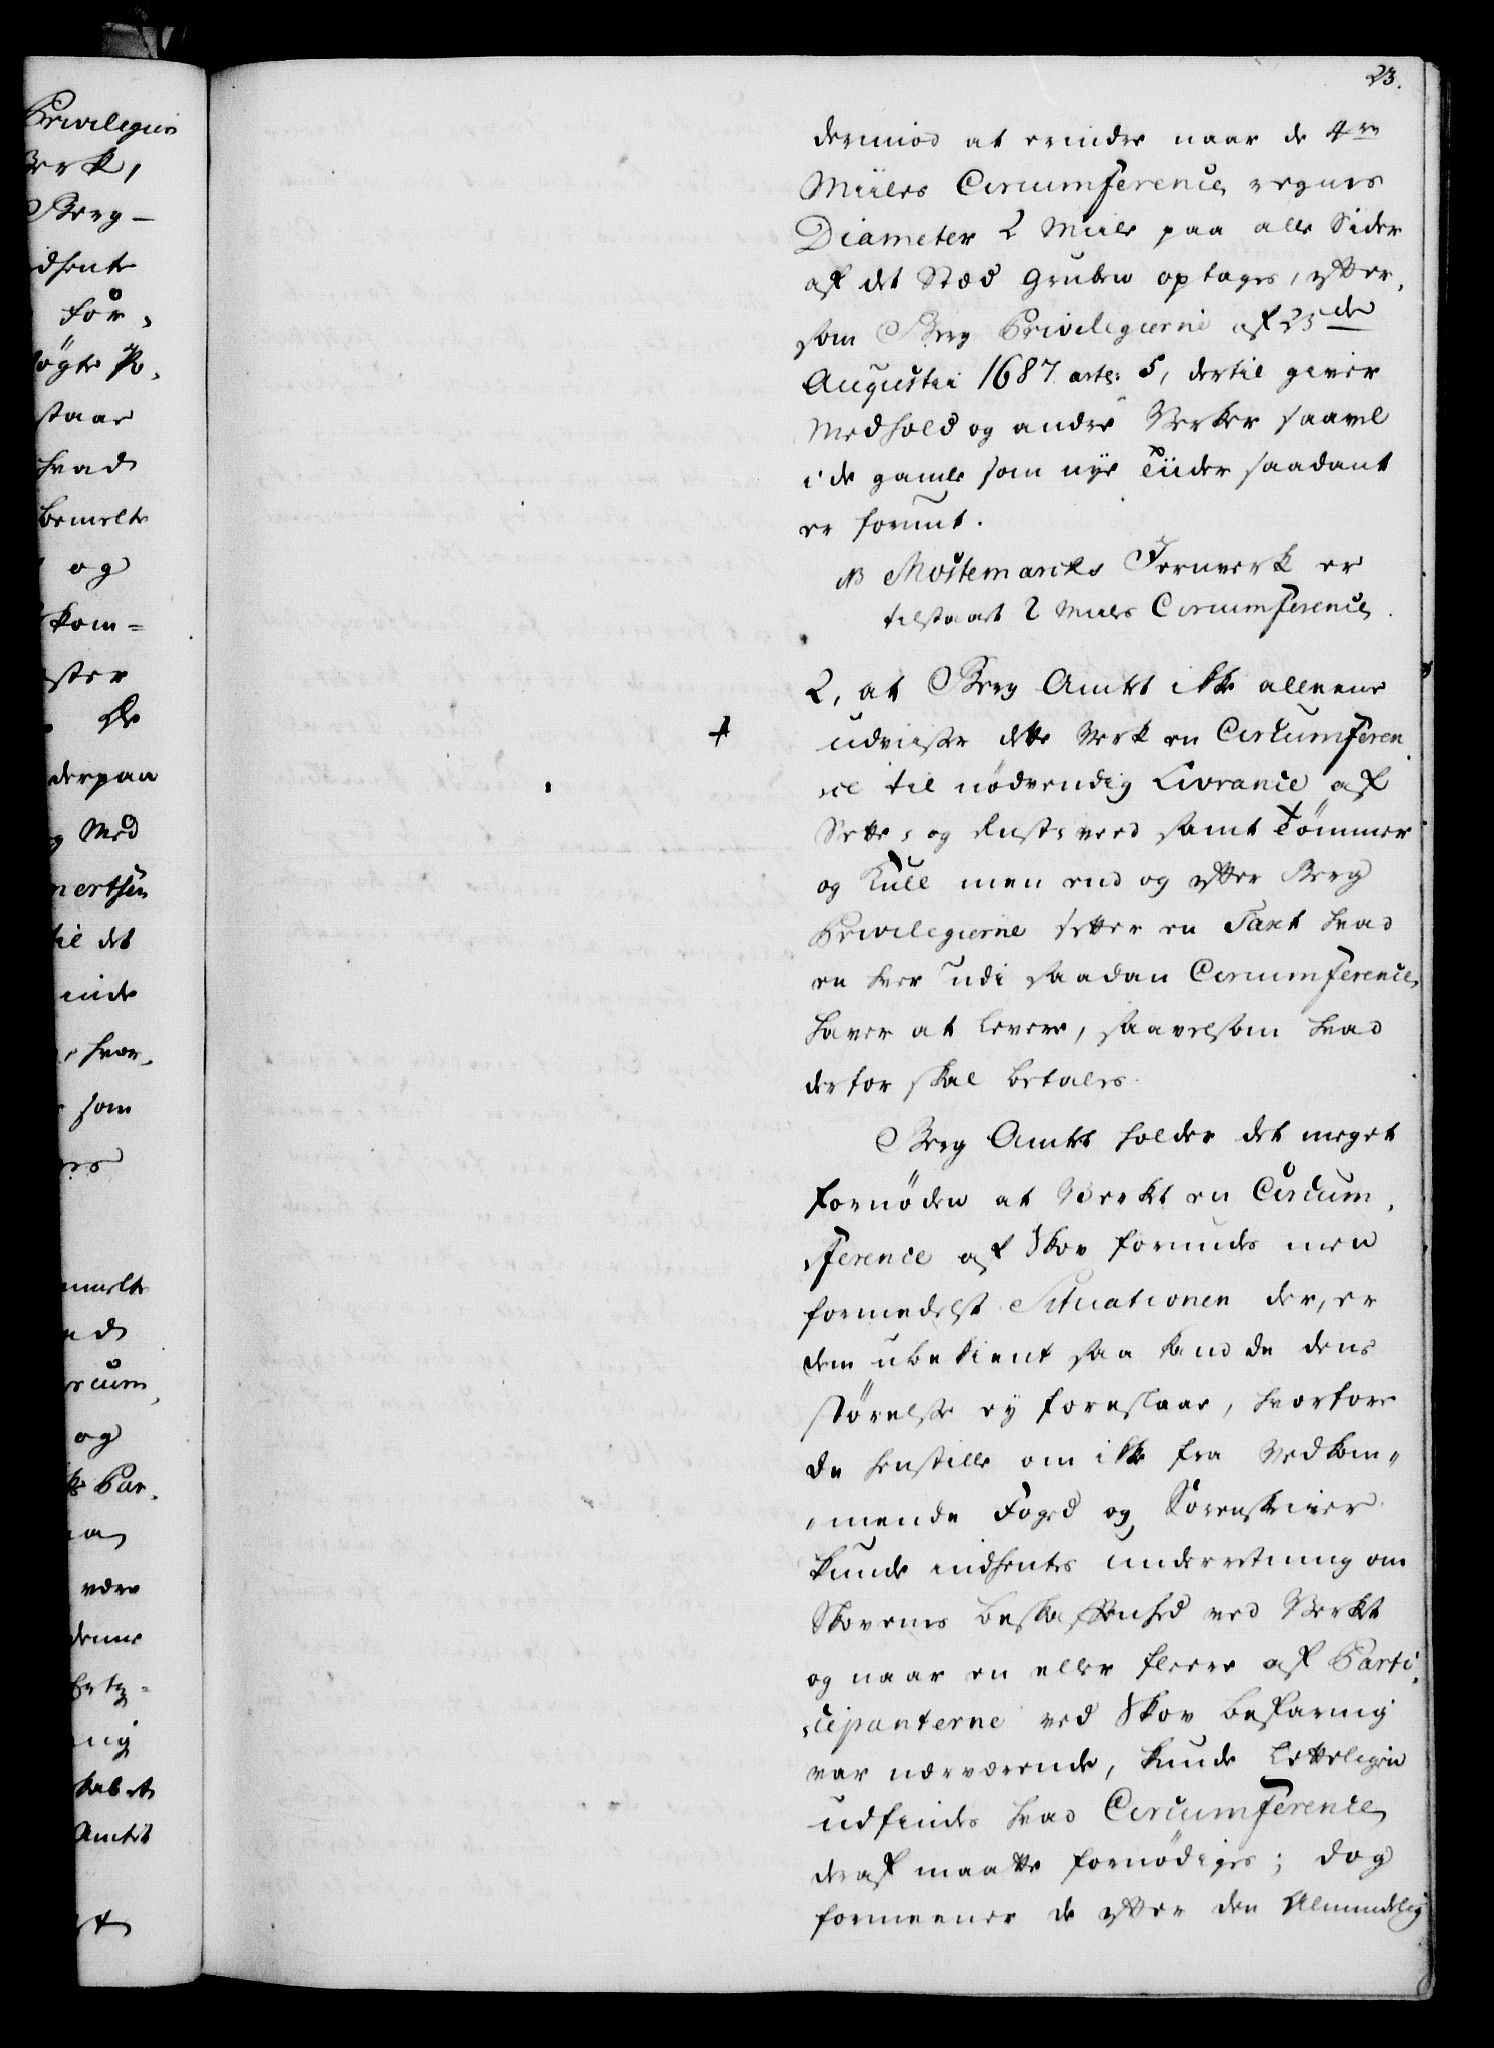 23.
dermod at erindre naar de 4re
Miiles Circumference regnes
Diameter 2 Miile paa alle Sider
af det Stæd Gruben optages, efter,
som Berg Privilegierne af 23de
Augustii 1687 artl: 5, dertil giver
Medhold og andre Verker saavel
i de gamle som nye Tiider saadant
er forundt.
NB Mostemarks Jernverk er
tilstaaet 2 Miils Circumference.
2, at Berg Amtet ikke alleene
udviiser dette Verk en Circumferen
ce til nödvendig Livrance af
Sette, og Rust, veed samt Tömmer
og Kull men end og efter Berg
Privilegierne setter en Taxt hvad
en hver udi saadan Circumference
haver at levere, saavelsom hvad
derfor skal betales.
Berg Amtet holder det meget
fornöden at Verket en Circum,
ference af Skov forundes men
formedelst Situationen der, er
dem ubekient saa kand de dens
störelse ey foreslaae, hvorfore
de henstille om ikke fra Vedkom,,
mende Foged og Sorenskriver
kunde indhentes underretning om
Skovenes beskaffenhed ved Verket
og naar en eller fleere af Parti,
cipanterne ved Skov besfaring
var nærværende, kunde letteligen
udfindes hvad Circumference
deraf maatte fornödiges; dog
formeener de efter den Almindelig
Privilegier
Verk,
Berg-
dhente
For,
ögte Po,
staae
hvad
bemelte
og
kom=
ster
De
derpaa
Med
mertsen
til det
inde
hvor,
som
melte
rcum,
og
Par,
være
denne
kabet
Amtet